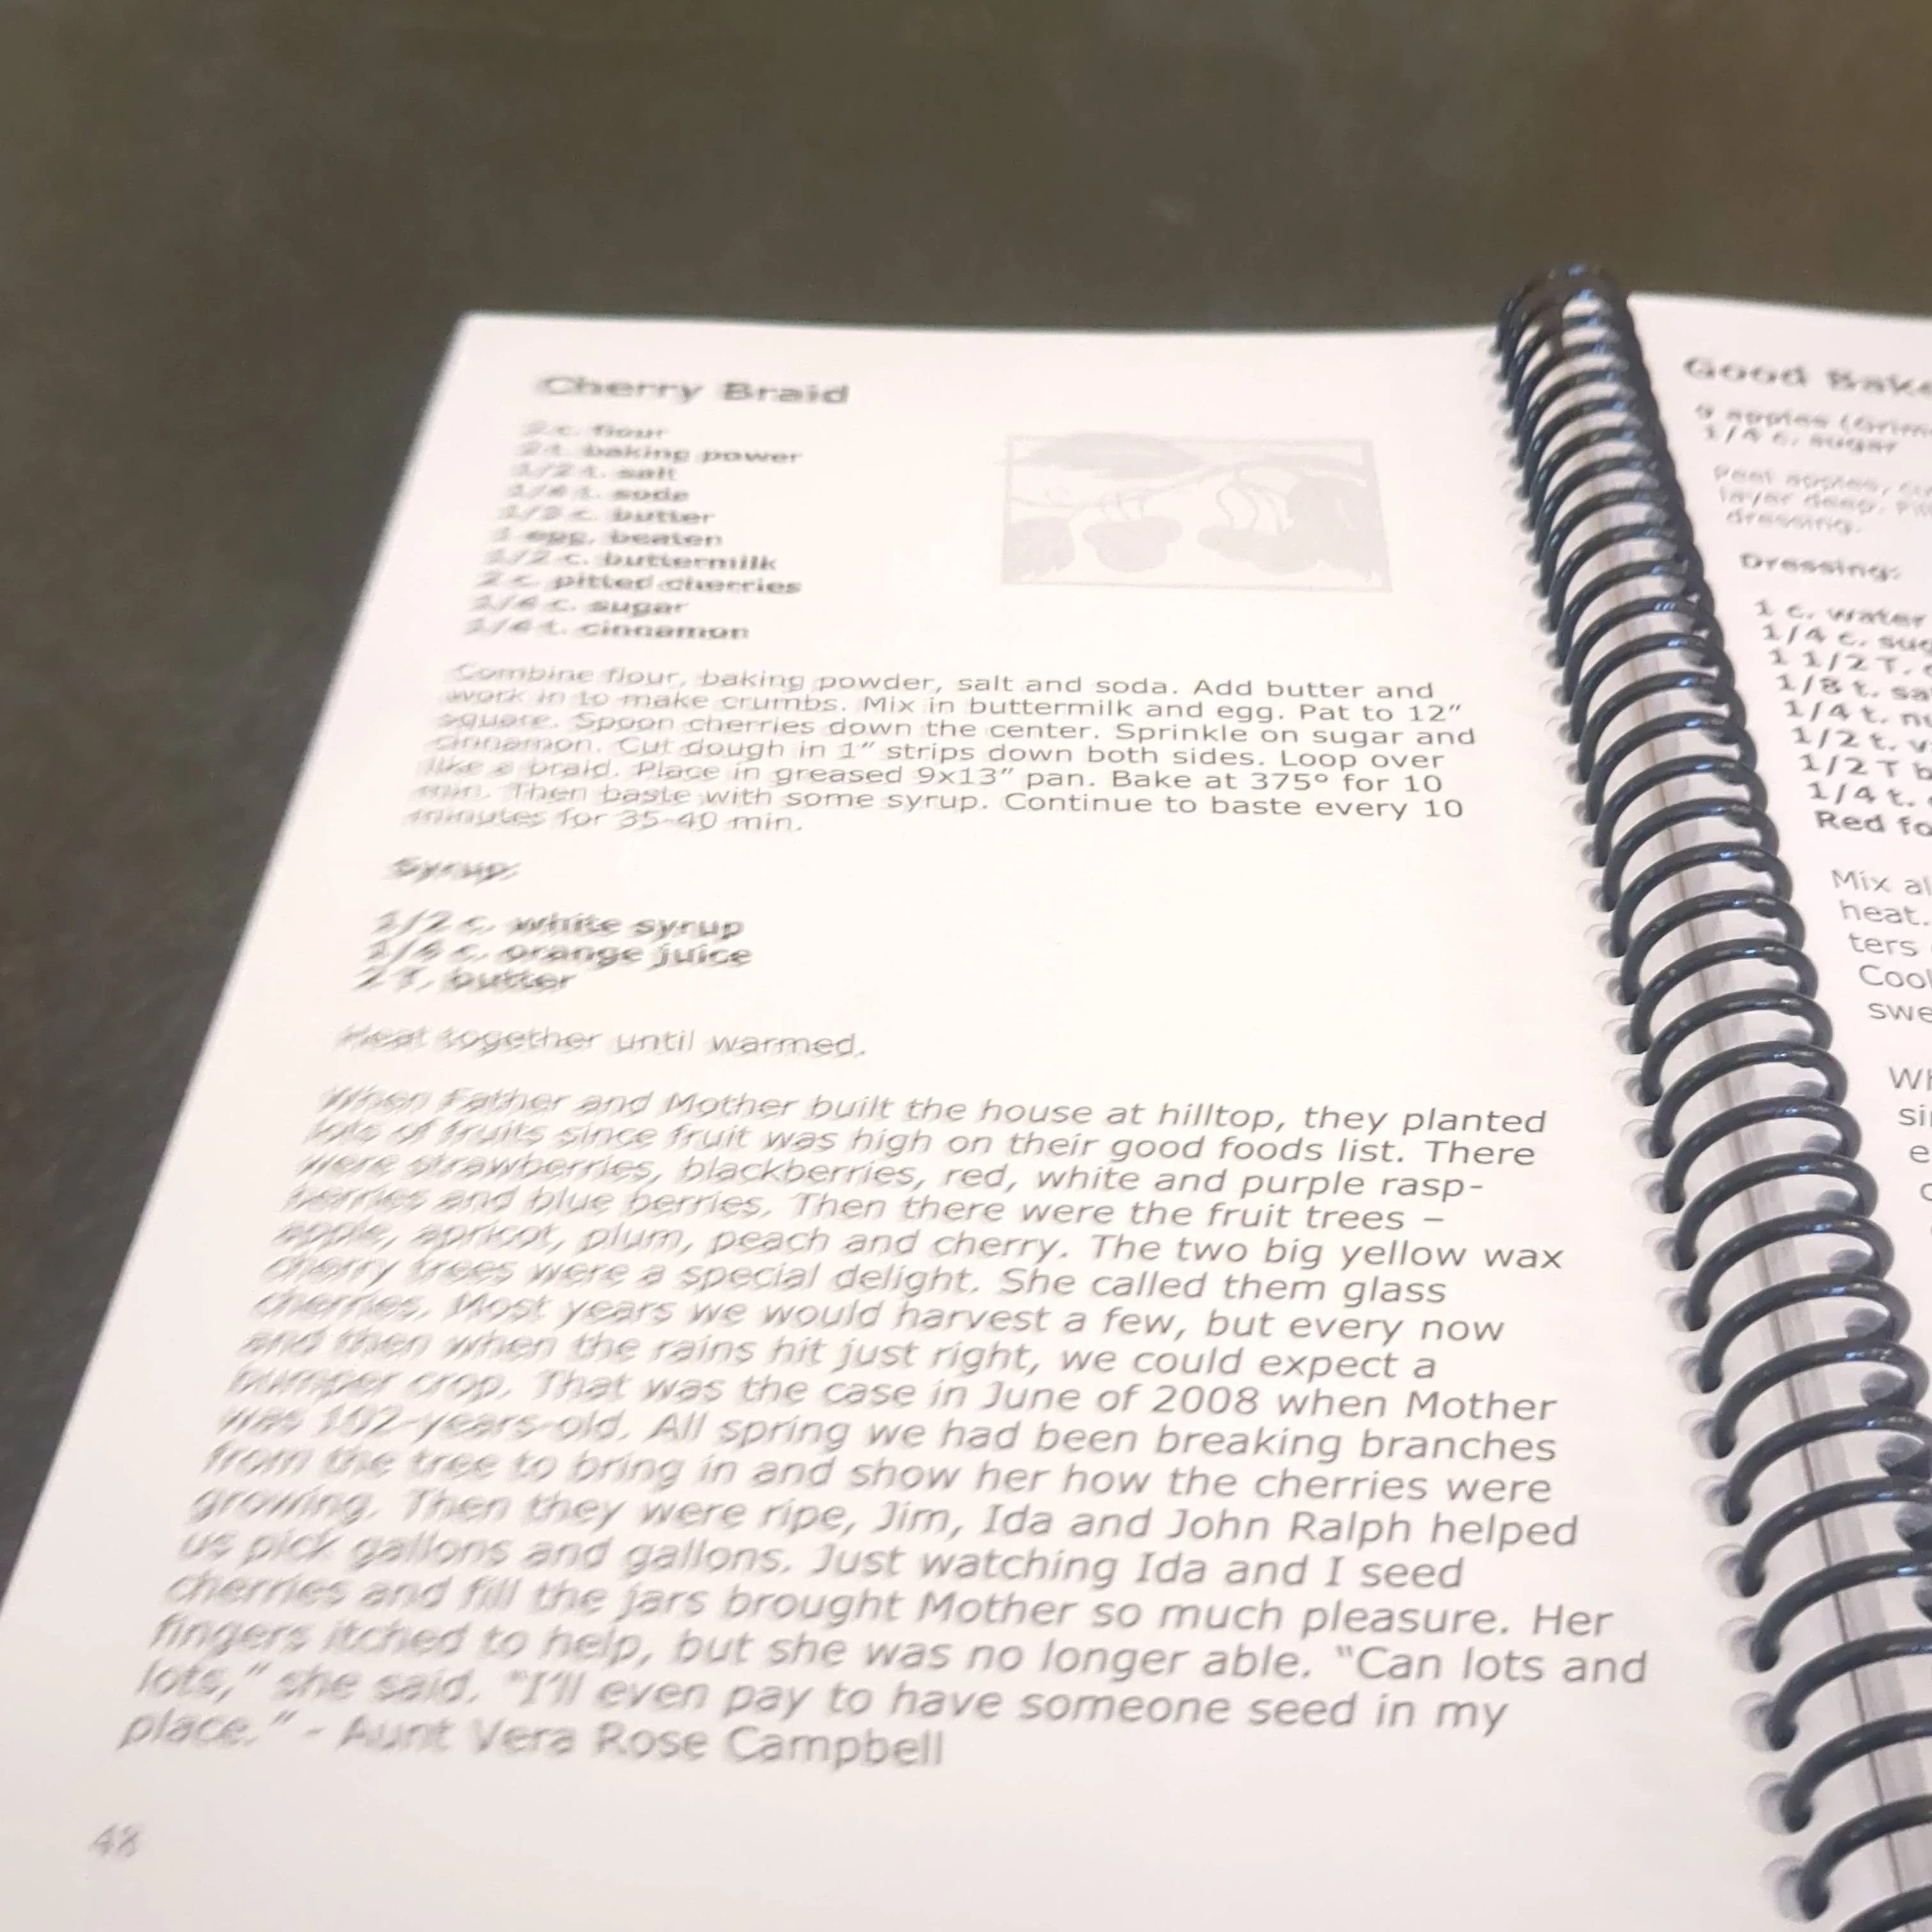 Cherry Braid
2 c. flour
2 t. baking power
1/2 t. salt
1/4 t. soda
1/3 c. butter
1 egg, beaten
1/2 c. buttermilk
2 c. pitted cherries
1/4 c. sugar
1/4 t. cinnamon
Combine flour, baking powder, salt and soda. Add butter and
work in to make crumbs. Mix in buttermilk and egg. Pat to 12"
square. Spoon cherries down the center. Sprinkle on sugar and
cinnamon. Cut dough in 1" strips down both sides. Loop over
like a braid. Place in greased 9x13" pan. Bake at 375° for 10
min. Then baste with some syrup. Continue to baste every 10
minutes for 35-40 min.
Syrup:
1/2 c. white syrup
1/4 c. orange juice
2 T. butter
Heat together until warmed.
When Father and Mother built the house at hilltop, they planted
lots of fruits since fruit was high on their good foods list. There
were strawberries, blackberries, red, white and purple rasp-
berries and blue berries. Then there were the fruit trees –
apple, apricot, plum, peach and cherry. The two big yellow wax
cherry trees were a special delight. She called them glass
cherries. Most years we would harvest a few, but every now
and then when the rains hit just right, we could expect a
bumper crop. That was the case in June of 2008 when Mother
was 102-years-old. All spring we had been breaking branches
from the tree to bring in and show her how the cherries were
growing. Then they were ripe, Jim, Ida and John Ralph helped
us pick gallons and gallons. Just watching Ida and I seed
cherries and fill the jars brought Mother so much pleasure. Her
fingers itched to help, but she was no longer able. "Can lots and
lots," she said. "I'll even pay to have someone seed in my
place." - Aunt Vera Rose Campbell
48
Good
9 apples
1/4 c. sugar
Peel apples,
layer deep.
dressing.
Dressing:
1 c. water
1/4 c.
1 1/2 T.
1/8 t.
1/4 t.
1/2 t.
1/2 T
1/4 t.
Red
Mix
heat.